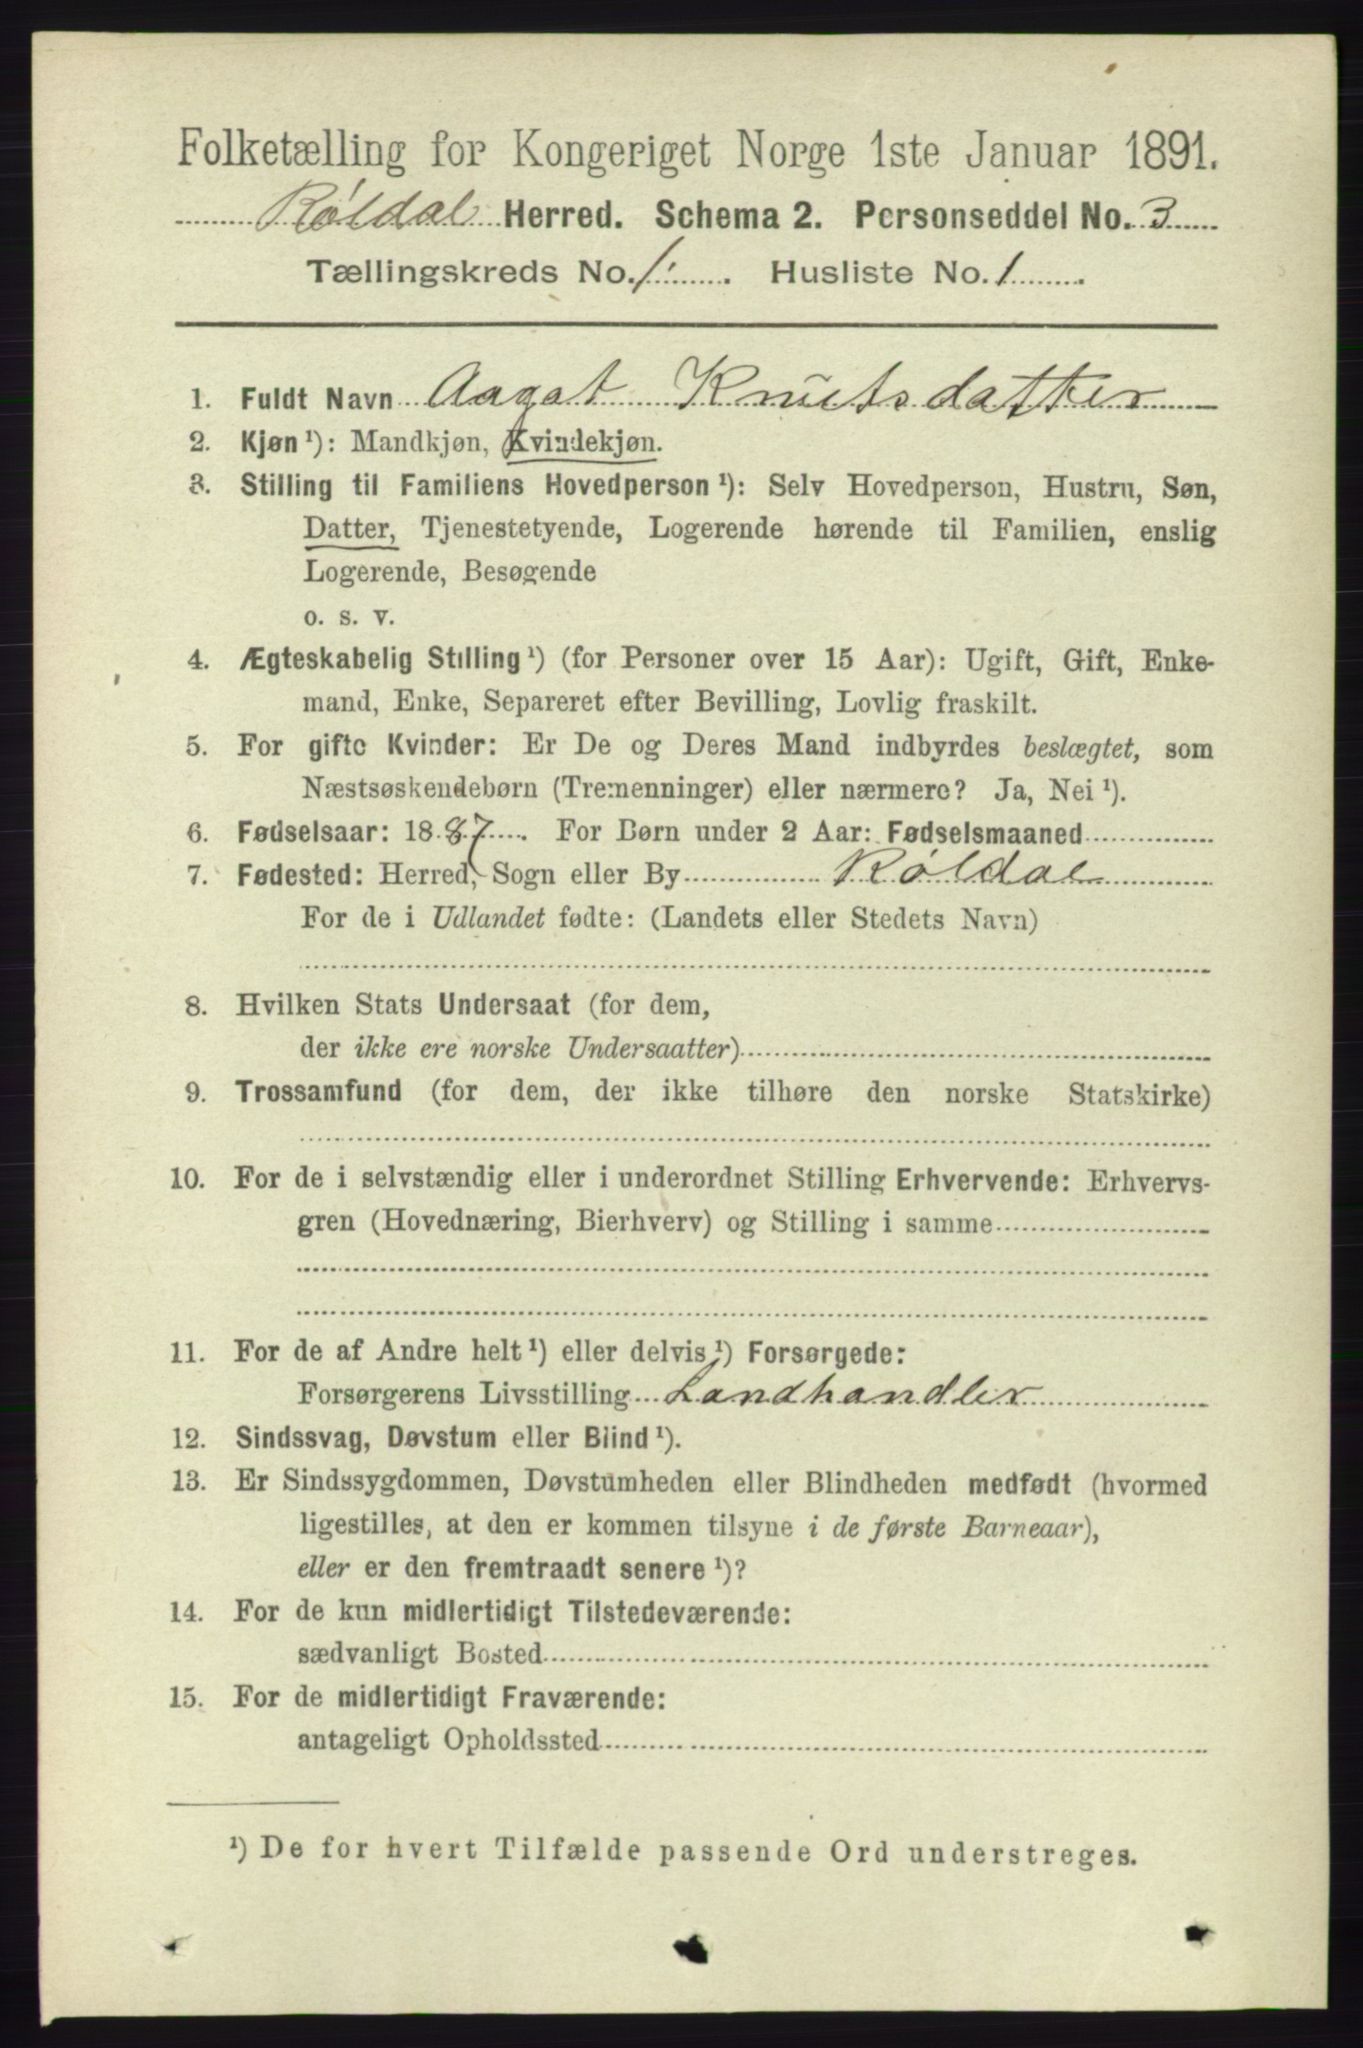 Folketælling for Kongeriget Norge 1ste Januar 1891.
Røldal Herred. Schema 2. Personseddel No. 3
Tællingskreds No. 1. Husliste No. 1.
1. Fuldt Navn Aagot Knutsdatter
2. Kjøn ¹): Mandkjøn, Kvindekjøn.
3. Stilling til Familiens Hovedperson ¹): Selv Hovedperson, Hustru, Søn,
Datter, Tjenestetyende, Logerende hørende til Familien, enslig
Logerende, Besøgende
o. s. v.
4. Ægteskabelig Stilling ¹) (for Personer over 15 Aar): Ugift, Gift, Enke-
mand, Enke, Separeret efter Bevilling, Lovlig fraskilt.
5. For gifte Kvinder: Er De og Deres Mand indbyrdes beslægtet, som
Næstsøskendebørn (Tremenninger) eller nærmere? Ja, Nei ¹).
6. Fødselsaar: 1887. For Børn under 2 Aar: Fødselsmaaned
7. Fødested: Herred, Sogn eller By Røldal
For de i Udlandet fødte: (Landets eller Stedets Navn)
8. Hvilken Stats Undersaat (for dem,
der ikke ere norske Undersaatter)
9. Trossamfund (for dem, der ikke tilhøre den norske Statskirke)
10. For de i selvstændig eller i underordnet Stilling Erhvervende: Erhvervs-
gren (Hovednæring, Bierhverv) og Stilling i samme
11. For de af Andre helt ¹) eller delvis ¹) Forsørgede:
Forsørgerens Livsstilling Landhandler
12. Sindssvag, Døvstum eller Blind ¹).
13. Er Sindssygdommen, Døvstumheden eller Blindheden medfødt (hvormed
ligestilles, at den er kommen tilsyne i de første Barneaar),
eller er den fremtraadt senere ¹)?
14. For de kun midlertidigt Tilstedeværende:
sædvanligt Bosted
15. For de midlertidigt Fraværende:
antageligt Opholdssted
¹) De for hvert Tilfælde passende Ord understreges.